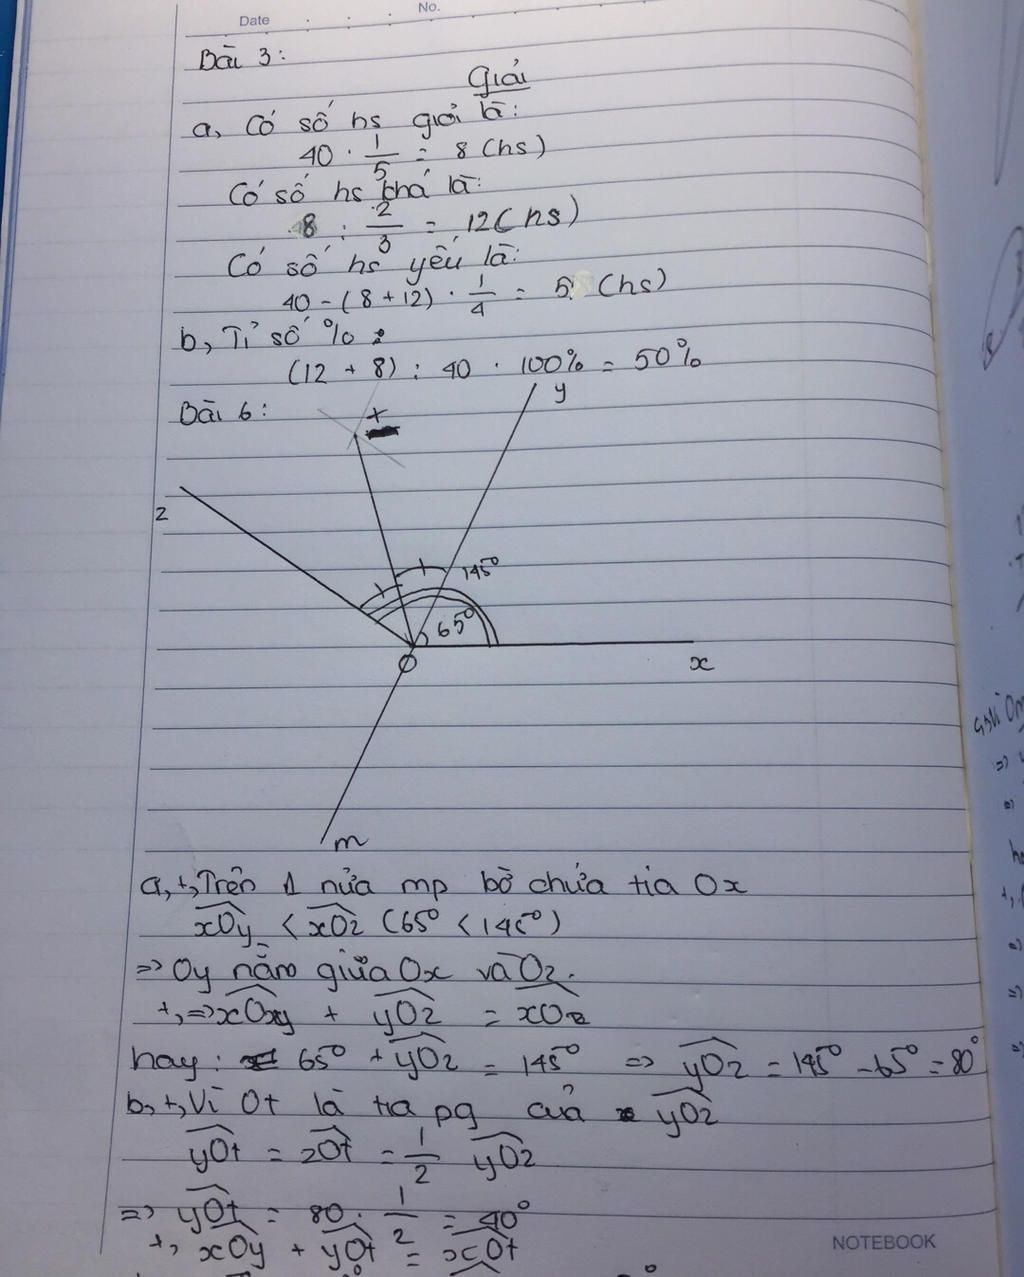 Date
No.
Bài 3:
Giải
a, Có số hs giỏi là:
40 · 1/5 = 8 (hs)
Có số hs khá là:
8 : 2/3 = 12 (hs)
Có số hs yếu là:
40 - (8 + 12) · 1/4 = 5 (hs)
b, Tỉ số % :
(12 + 8) : 40 · 100% = 50%
Bài 6:
t
y
z
145°
65°
O
x
m
a, +, Trên 1 nửa mp bờ chứa tia Ox
xOy < xOz (65° < 145°)
=> Oy nằm giữa Ox và Oz.
+, => xOy + yOz = xOz
hay: 65° + yOz = 145° => yOz = 145° - 65° = 80°
b, +, Vì Ot là tia pg của yOz
yOt = zOt = 1/2 yOz
=> yOt = 80 · 1/2 = 40°
+, xOy + yOt = xOt
NOTEBOOK